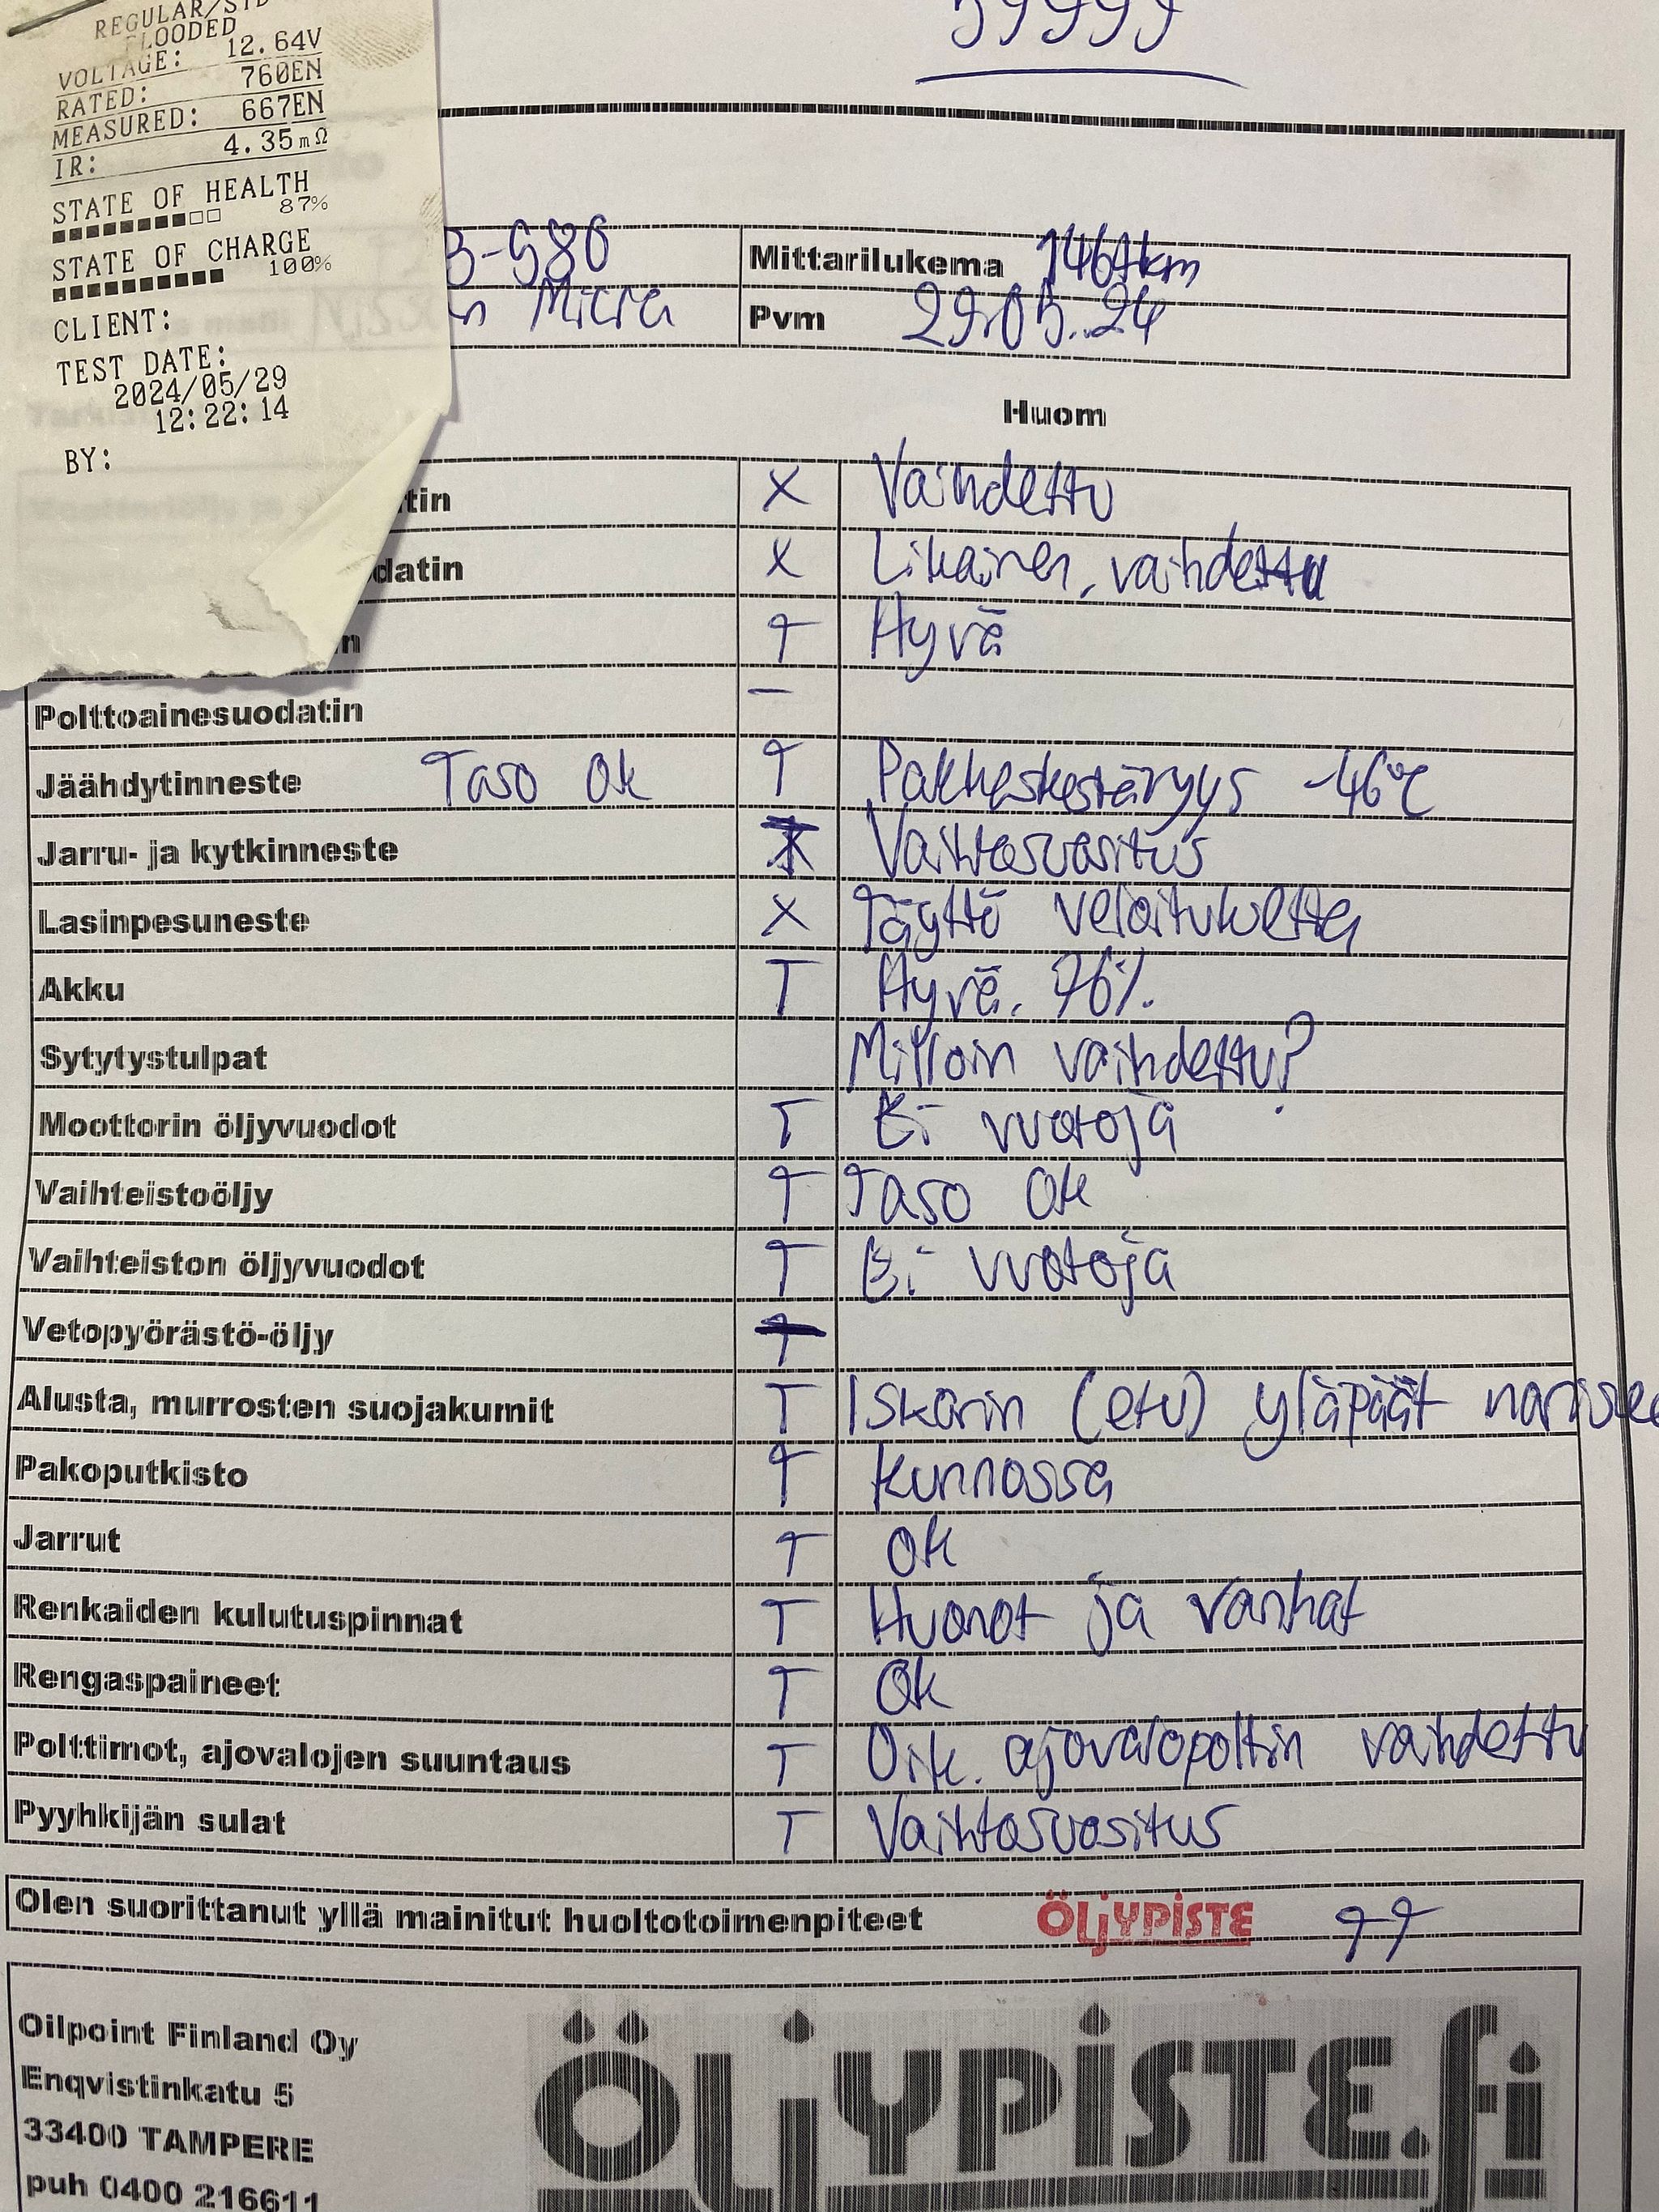 REGULAR/STD
FLOODED
VOLTAGE: 12.64V
RATED: 760EN
MEASURED: 667EN
IR: 4.35mΩ
STATE OF HEALTH
87%
STATE OF CHARGE
100%
CLIENT:
TEST DATE:
2024/05/29
12:22:14
BY:
B-980 Mittarilukema
n Micra Pvm 29.05.24
Huom
tin X Vaihdettu
datin X Likainen, vaihdettu
n T Hyvä
Polttoainesuodatin –
Jäähdytinneste Taso Ok T Pakkeskestävyys -46°C
Jarru- ja kytkinneste Vaihtosuositus
Lasinpesuneste X Täyttö veloituksetta
Akku T Hyvä. 76%.
Sytytystulpat Milloin vaihdettu?
Moottorin öljyvuodot T Ei vuotoja
Vaihteistoöljy T Taso Ok
Vaihteiston öljyvuodot T Ei vuotoja
Vetopyörästö-öljy
Alusta, murrosten suojakumit T Iskarin (etu) yläpäät narisee
Pakoputkisto T Kunnossa
Jarrut T Ok
Renkaiden kulutuspinnat T Huonot ja vanhat
Rengaspaineet T Ok
Polttimot, ajovalojen suuntaus T Oik. ajovalopoltin vaihdettu
Pyyhkijän sulat T Vaihtosuositus
Olen suorittanut yllä mainitut huoltotoimenpiteet ÖLJYPISTE TT
Oilpoint Finland Oy
Enqvistinkatu 5
33400 TAMPERE
puh 0400 216611
ÖLJYPISTE.fi